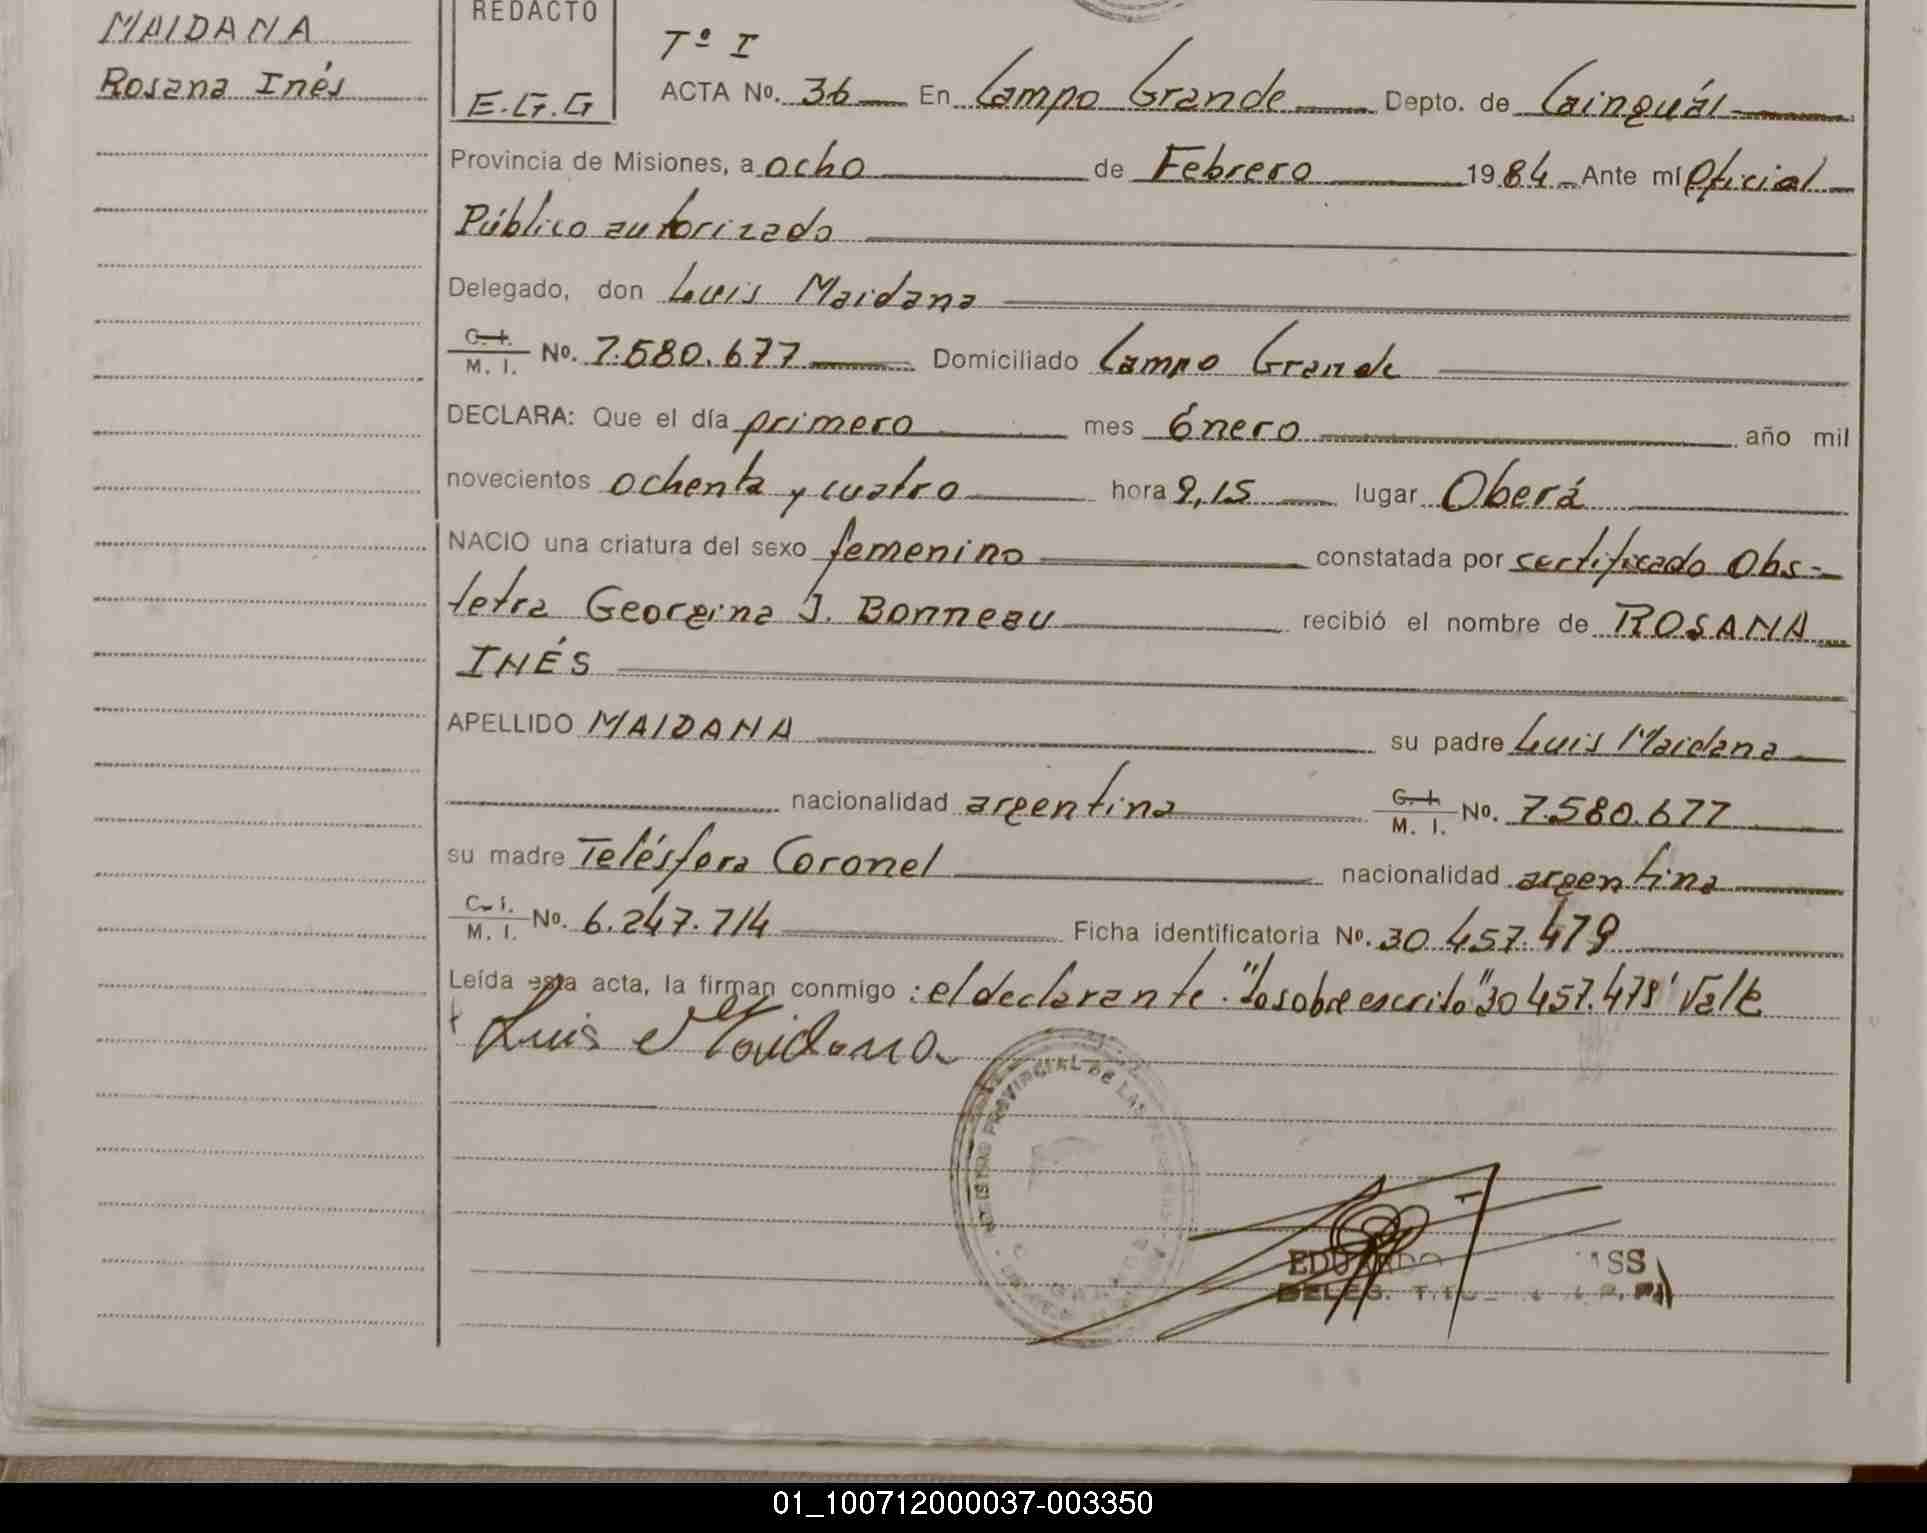 MAIDANA
Rosana Inés
REDACTO
E.G.G
Tº I
ACTA Nº. 36 En Campo Grande Depto. de Cainguás
Provincia de Misiones, a ocho de Febrero 1984 Ante mí Oficial
Público autorizado
Delegado, don Luis Maidana
C. I. M. I. Nº. 7.580.677 Domiciliado Campo Grande
DECLARA: Que el día primero mes Enero año mil
novecientos ochenta y cuatro hora 9,15 lugar Oberá
NACIO una criatura del sexo femenino constatada por certificado Obs-
tetra Georgina J. Bonneau recibió el nombre de ROSANA
INÉS
APELLIDO MAIDANA su padre Luis Maidana
nacionalidad argentina C. I. M. I. Nº. 7.580.677
su madre Telésfora Coronel nacionalidad argentina
C. I. M. I. Nº. 6.247.714 Ficha identificatoria Nº. 30.457.479
Leída esta acta, la firman conmigo: el declarante. "lo sobre escrito" 30 457.479" Vale
Luis Maidana
PROVINCIAL DE LAS
EDUARDO
DELEG.
01_100712000037-003350